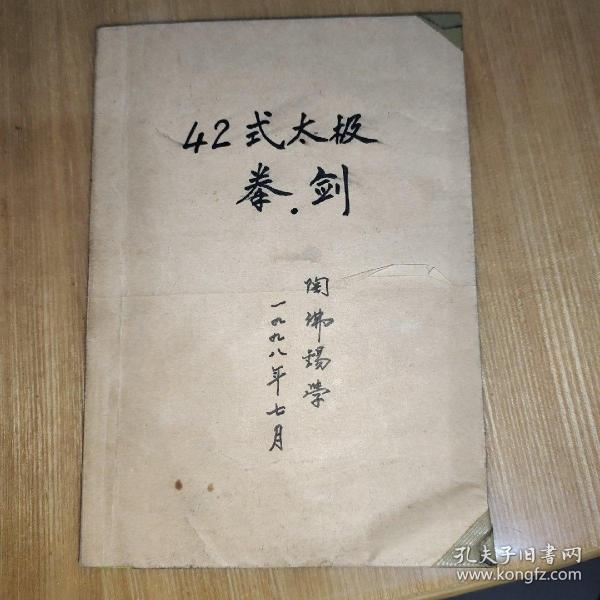 42式太极
拳.剑
陶佛锡学
一九九八年七月
孔夫子旧書网
www.kongfz.com